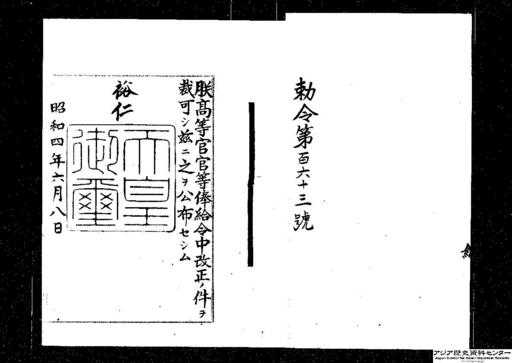 勅令第百六十三號
朕高等官官等俸給令中改正ノ件ヲ
裁可シ玆ニ之ヲ公布セシム
裕仁
天皇
御璽
昭和四年六月八日
アジア歴史資料センター
Japan Center for Asian Historical Records